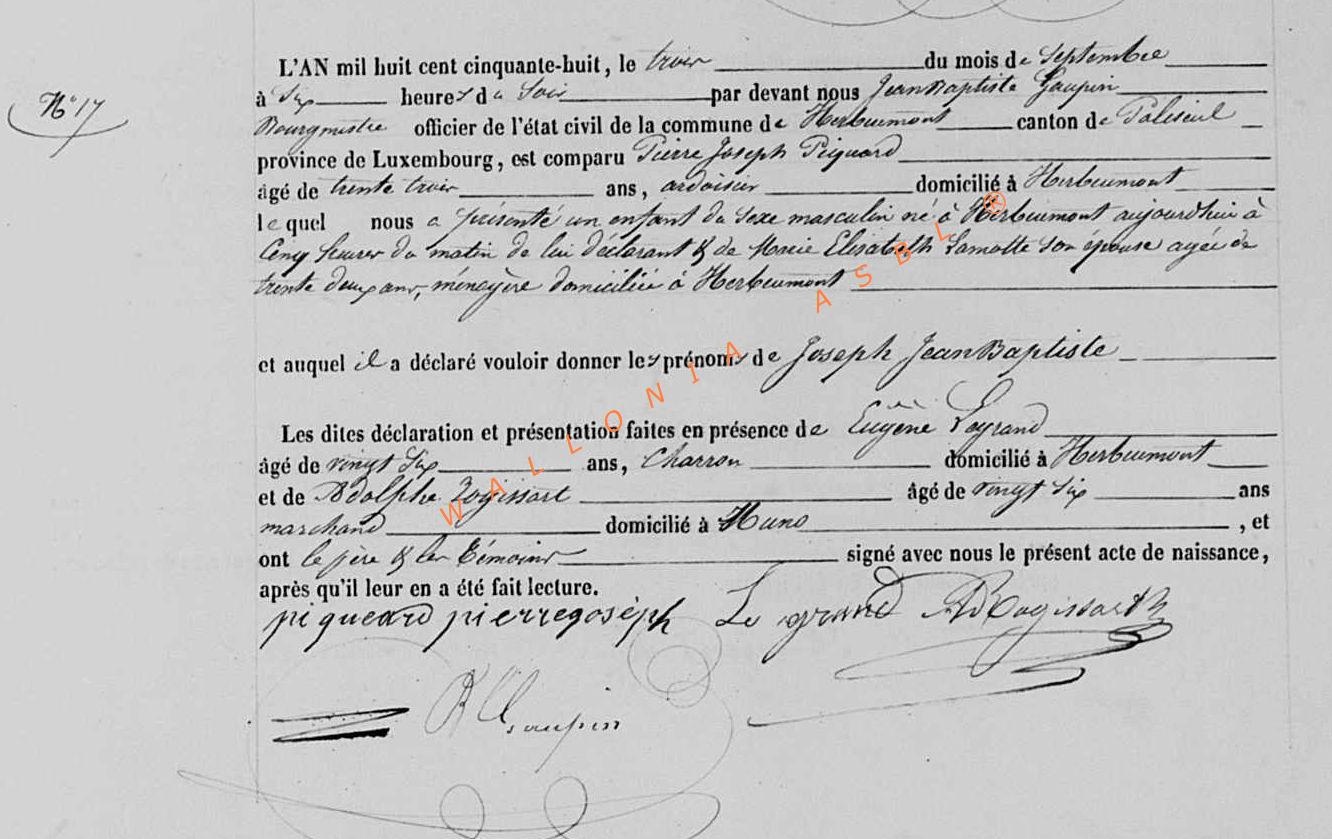 L'AN mil huit cent cinquante-huit, le trois du mois de Septembre
N° 17
à Six heures du Soir par devant nous Jean Baptiste Gaupin
Bourgmestre officier de l'état civil de la commune de Herbeumont canton de Paliseul
province de Luxembourg, est comparu Pierre Joseph Piquard
âgé de trente trois ans, ardoisier domicilié à Herbeumont
lequel nous a présenté un enfant du Sexe masculin né à Herbeumont aujourd'hui à
Cinq heures du matin de lui déclarant & de Marie Elisabeth Lamotte Son épouse agée de
trente deux ans, ménagère domiciliée à Herbeumont
et auquel il a déclaré vouloir donner les prénoms de Joseph Jean Baptiste
Les dites déclaration et présentation faites en présence de Eugène Legrand
âgé de vingt Six ans, Charron domicilié à Herbeumont
et de Adolphe Rogissart âgé de vingt Six ans
marchand domicilié à Muno, et
ont le père & les témoins signé avec nous le présent acte de naissance,
après qu'il leur en a été fait lecture.
piqueard pierre goséph Le grand A Rogissart
Gaupin
WALLONIA ASBL ®